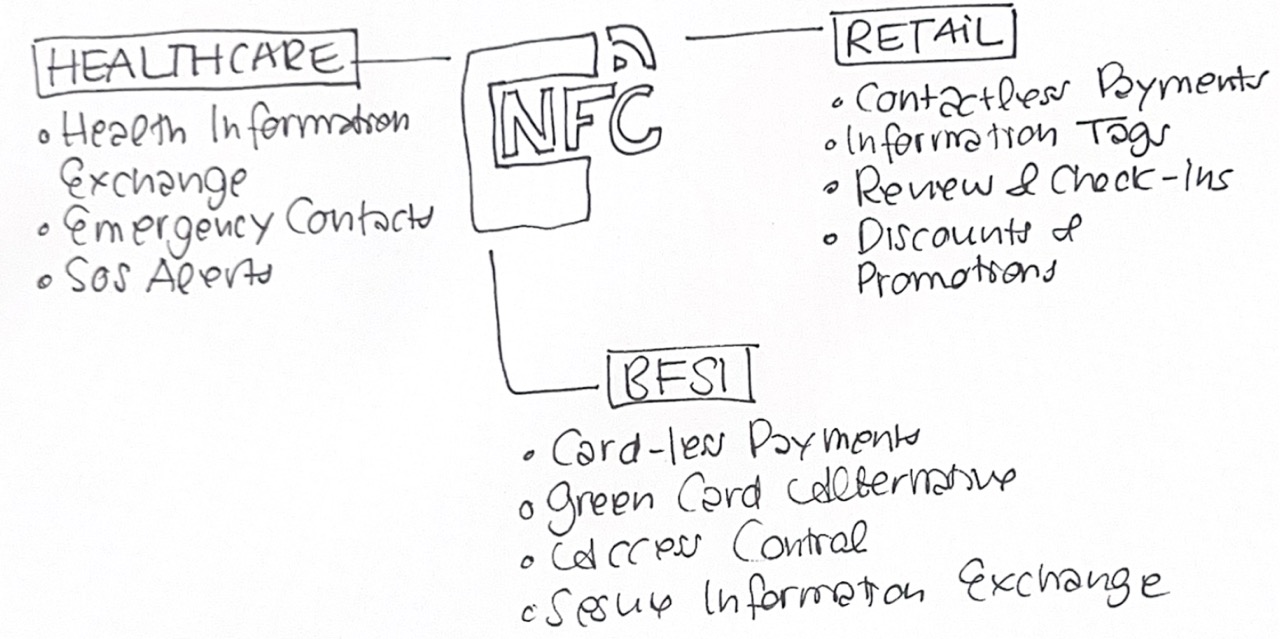 HEALTHCARE
• Health Information
Exchange
• Emergency Contacts
• SOS Alerts
NFC
RETAiL
• Contactless Payments
• Information Tags
• Review & Check-ins
• Discounts &
Promotions
BFSI
• Card-less Payments
• Green Card Alternative
• Access Control
• Information Exchange